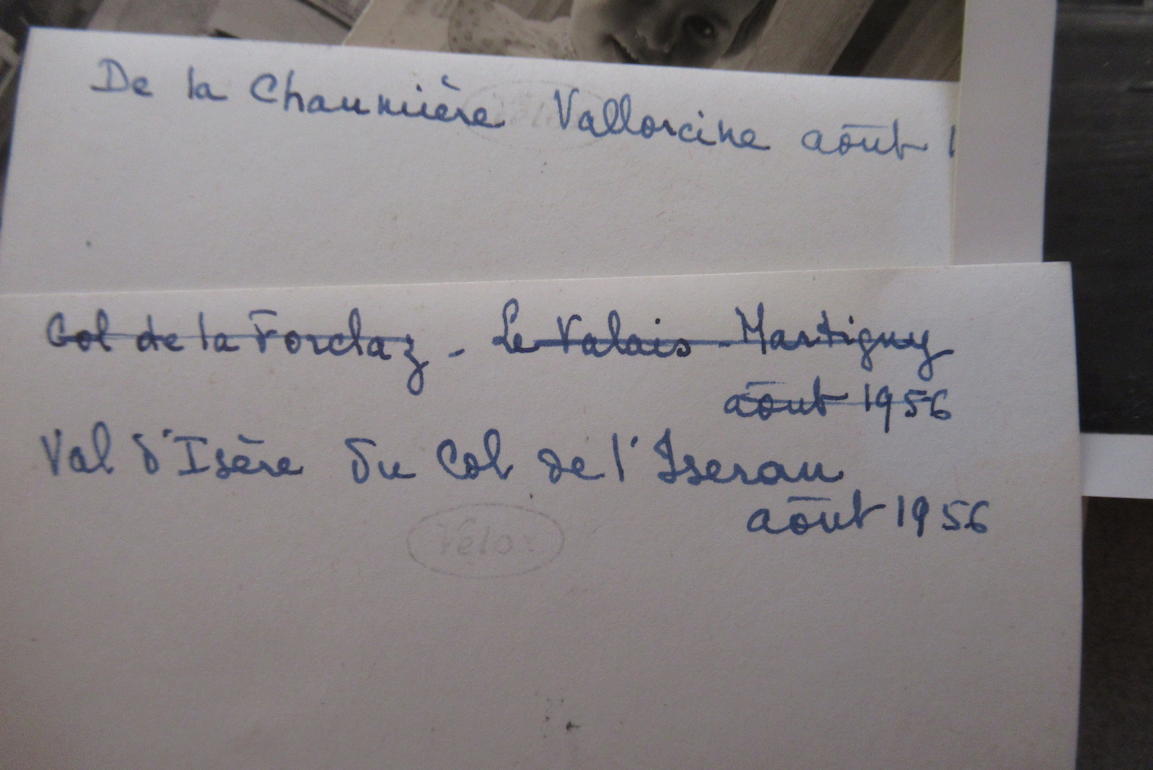 De la Chaumière Vallorcine août 1
Col de la Forclaz - Le Valais - Martigny
août 1956
Val d'Isère du Col de l'Iseran
août 1956
Velox